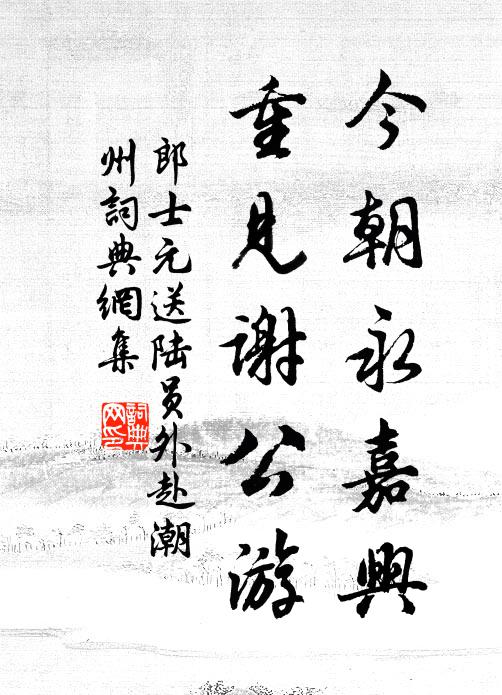 今朝永嘉興
重見謝公游
郎士元送陆员外赴潮
州詞典網集
詞典网印